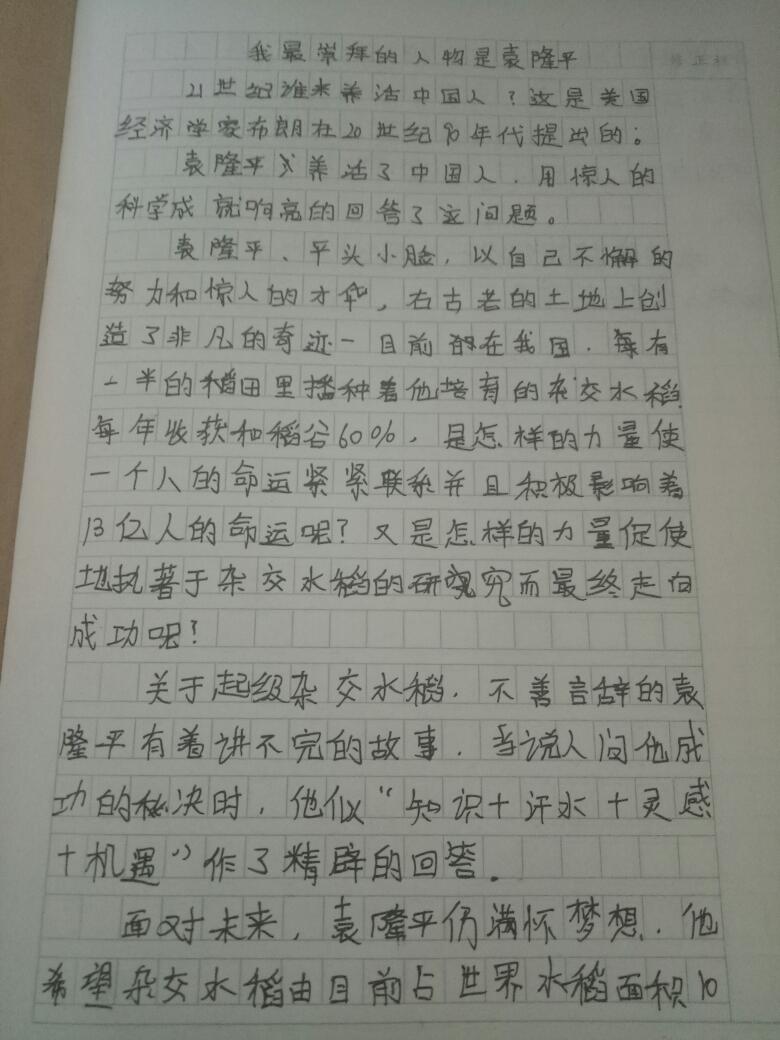 我最崇拜的人物是袁隆平
21世纪谁来养活中国人？这是美国
经济学家布朗在20世纪90年代提出的；
袁隆平养活了中国人．用惊人的
科学成就响亮的回答了这问题。
袁隆平、平头小脸，以自己不懈的
努力和惊人的才华，右古老的土地上创
造了非凡的奇迹一目前在我国．每有
一半的稻田里播种着他培育的杂交水稻．
每年收获和稻谷60%，是怎样的力量使
一个人的命运紧紧联系并且积极影响着
13亿人的命运呢？又是怎样的力量促使
地执著于杂交水稻的研究而最终走向
成功呢？
关于起级杂交水稻．不善言辞的袁
隆平有着讲不完的故事．当说人问他成
功的秘决时，他似“知识十汗水十灵感
十机遇”作了精辟的回答．
面对未来，袁隆平仍满怀梦想．他
希望杂交水稻由目前占世界水稻面积10